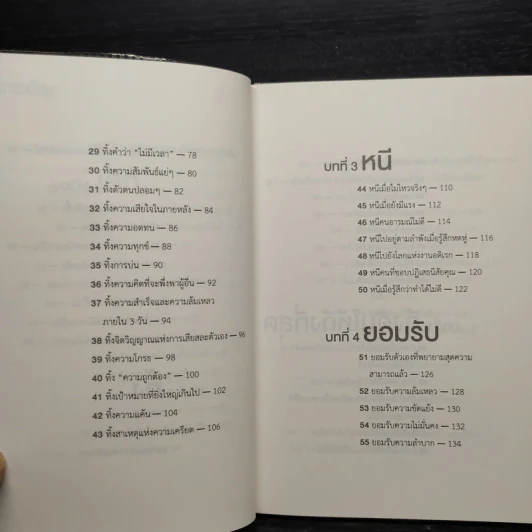 29 ทิ้งคำว่า "ไม่มีเวลา" — 78
30 ทิ้งความสัมพันธ์แย่ๆ — 80
31 ทิ้งตัวตนปลอมๆ — 82
32 ทิ้งความเสียใจในภายหลัง — 84
33 ทิ้งความอดทน — 86
34 ทิ้งความทุกข์ — 88
35 ทิ้งการบ่น — 90
36 ทิ้งความคิดที่จะพึ่งพาผู้อื่น — 92
37 ทิ้งความสำเร็จและความล้มเหลว
ภายใน 3 วัน — 94
38 ทิ้งจิตวิญญาณแห่งการเสียสละตัวเอง — 96
39 ทิ้งความโกรธ — 98
40 ทิ้ง "ความถูกต้อง" — 100
41 ทิ้งเป้าหมายที่ยิ่งใหญ่เกินไป — 102
42 ทิ้งความแค้น — 104
43 ทิ้งสาเหตุแห่งความเครียด — 106
บทที่ 3 หนี
44 หนีเมื่อไม่ไหวจริงๆ — 110
45 หนีเมื่อยังมีแรง — 112
46 หนีคนอารมณ์ไม่ดี — 114
47 หนีไปอยู่ตามลำพังเมื่อรู้สึกหดหู่ — 116
48 หนีไปยังโลกแห่งงานอดิเรก — 118
49 หนีคนที่ชอบปฏิเสธนิสัยคุณ — 120
50 หนีเมื่อรู้สึกว่าทำได้ไม่ดี — 122
บทที่ 4 ยอมรับ
51 ยอมรับตัวเองที่พยายามสุดความ
สามารถแล้ว — 126
52 ยอมรับความล้มเหลว — 128
53 ยอมรับความขัดแย้ง — 130
54 ยอมรับความไม่มั่นคง — 132
55 ยอมรับความลำบาก — 134